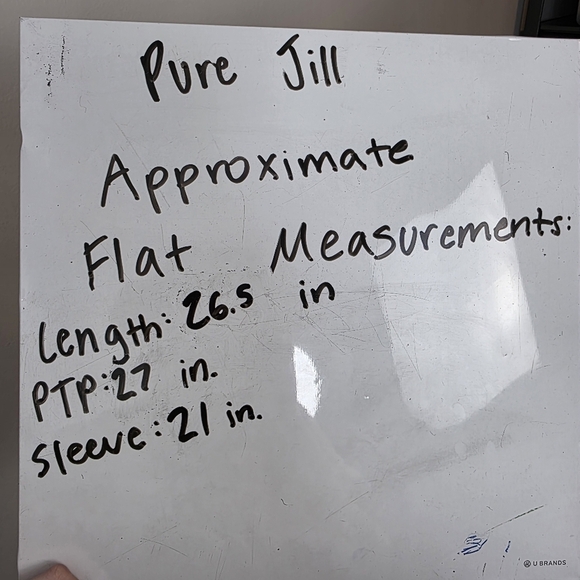 Pure Jill
Approximate
Flat Measurements:
Length: 26.5 in
PTP: 27 in.
Sleeve: 21 in.
U BRANDS